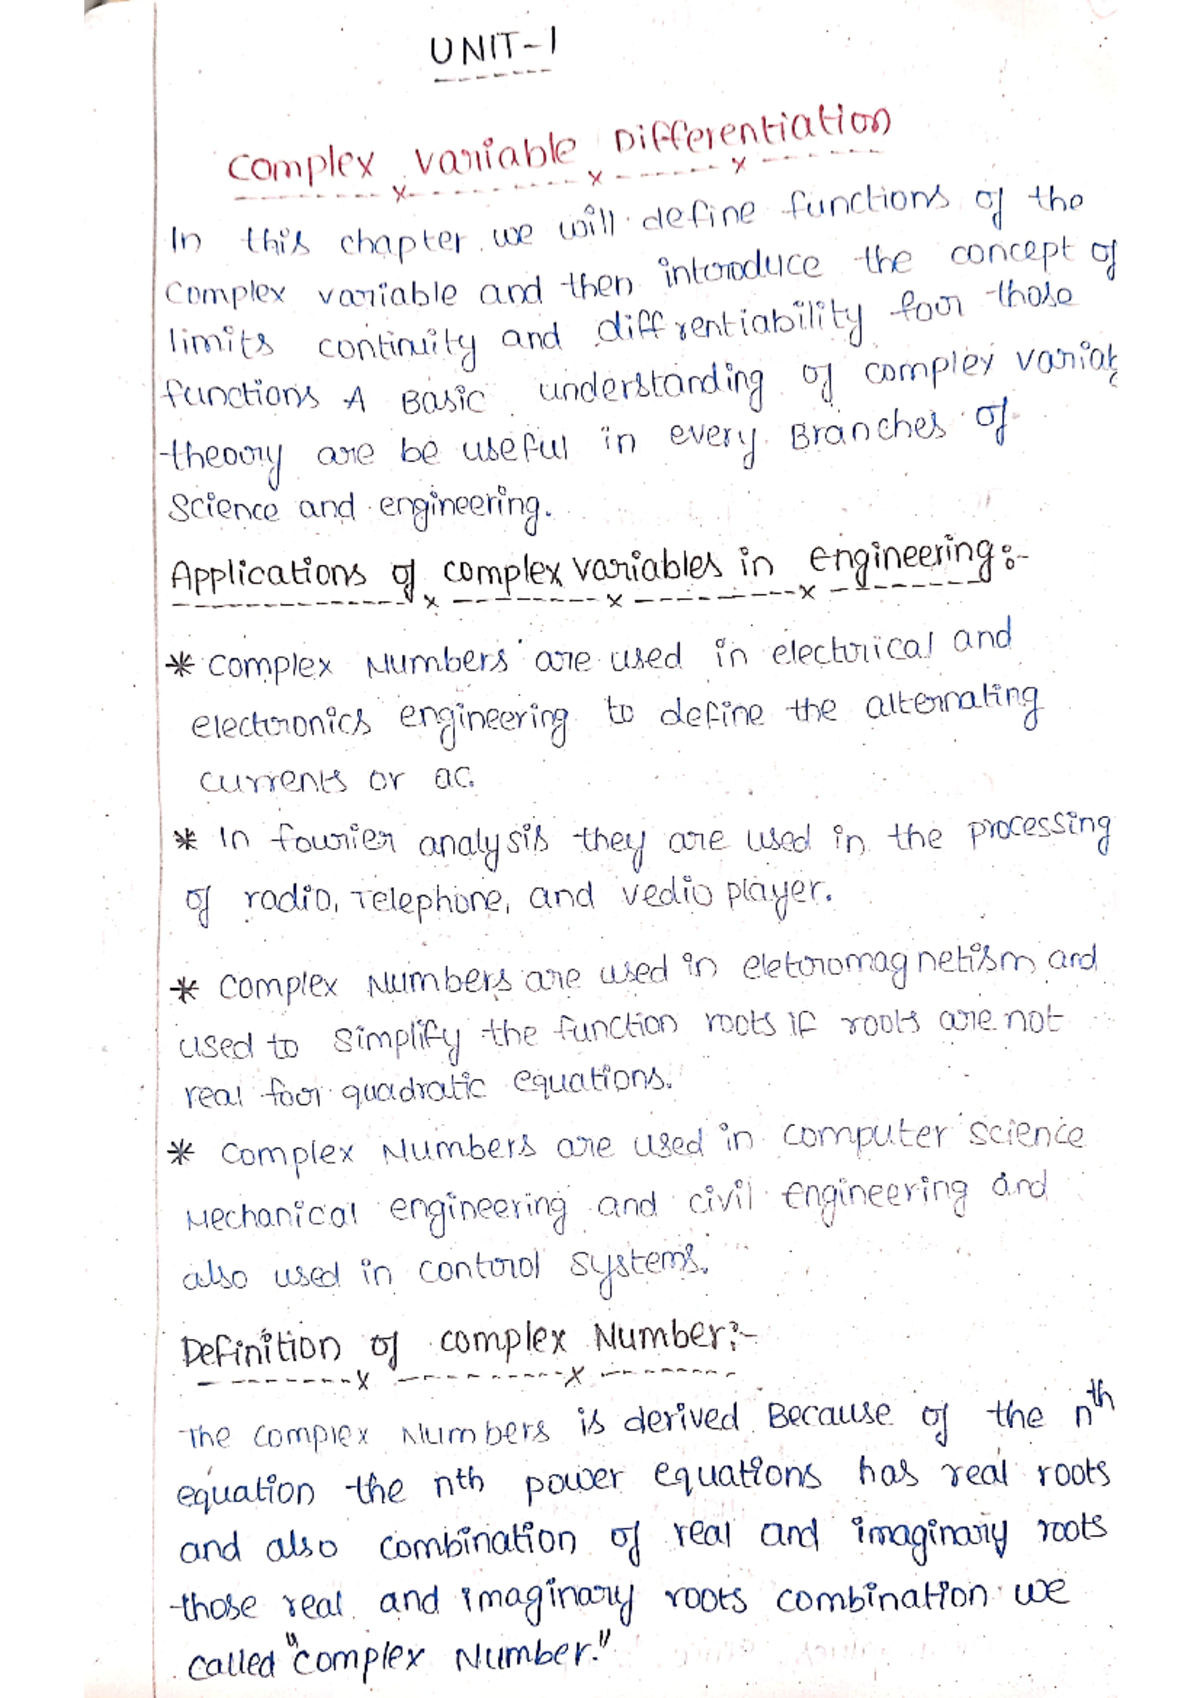 UNIT-1
Complex Variable Differentiation
In this chapter we will define functions of the
complex variable and then introduce the concept of
limits continuity and diffrentiability for those
functions A Basic understanding of complex variab
theory are be useful in every Branches of
Science and engineering.
Applications of complex variables in Engineering:-
* Complex Numbers are used in electrical and
electronics engineering to define the alternating
currents or ac.
* In fourier analysis they are used in the processing
of radio, Telephone, and vedio player.
* Complex Numbers are used in eletromagnetism and
used to simplify the function roots if roots are not
real for quadratic equations.
* Complex Numbers are used in computer science
Mechanical engineering and civil Engineering and
also used in control systems.
Definition of complex Number:-
The complex Numbers is derived Because of the nth
equation the nth power equations has real roots
and also combination of real and imaginary roots
those real and imaginary roots combination we
called "complex Number."